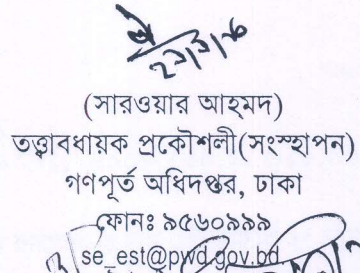 (সারওয়ার আহ্‌মদ)
তত্ত্বাবধায়ক প্রকৌশলী(সংস্হাপন)
গণপূর্ত অধিদপ্তর, ঢাকা
ফোনঃ ৯৫৬০৯৯৯
se_est@pwd.gov.bd